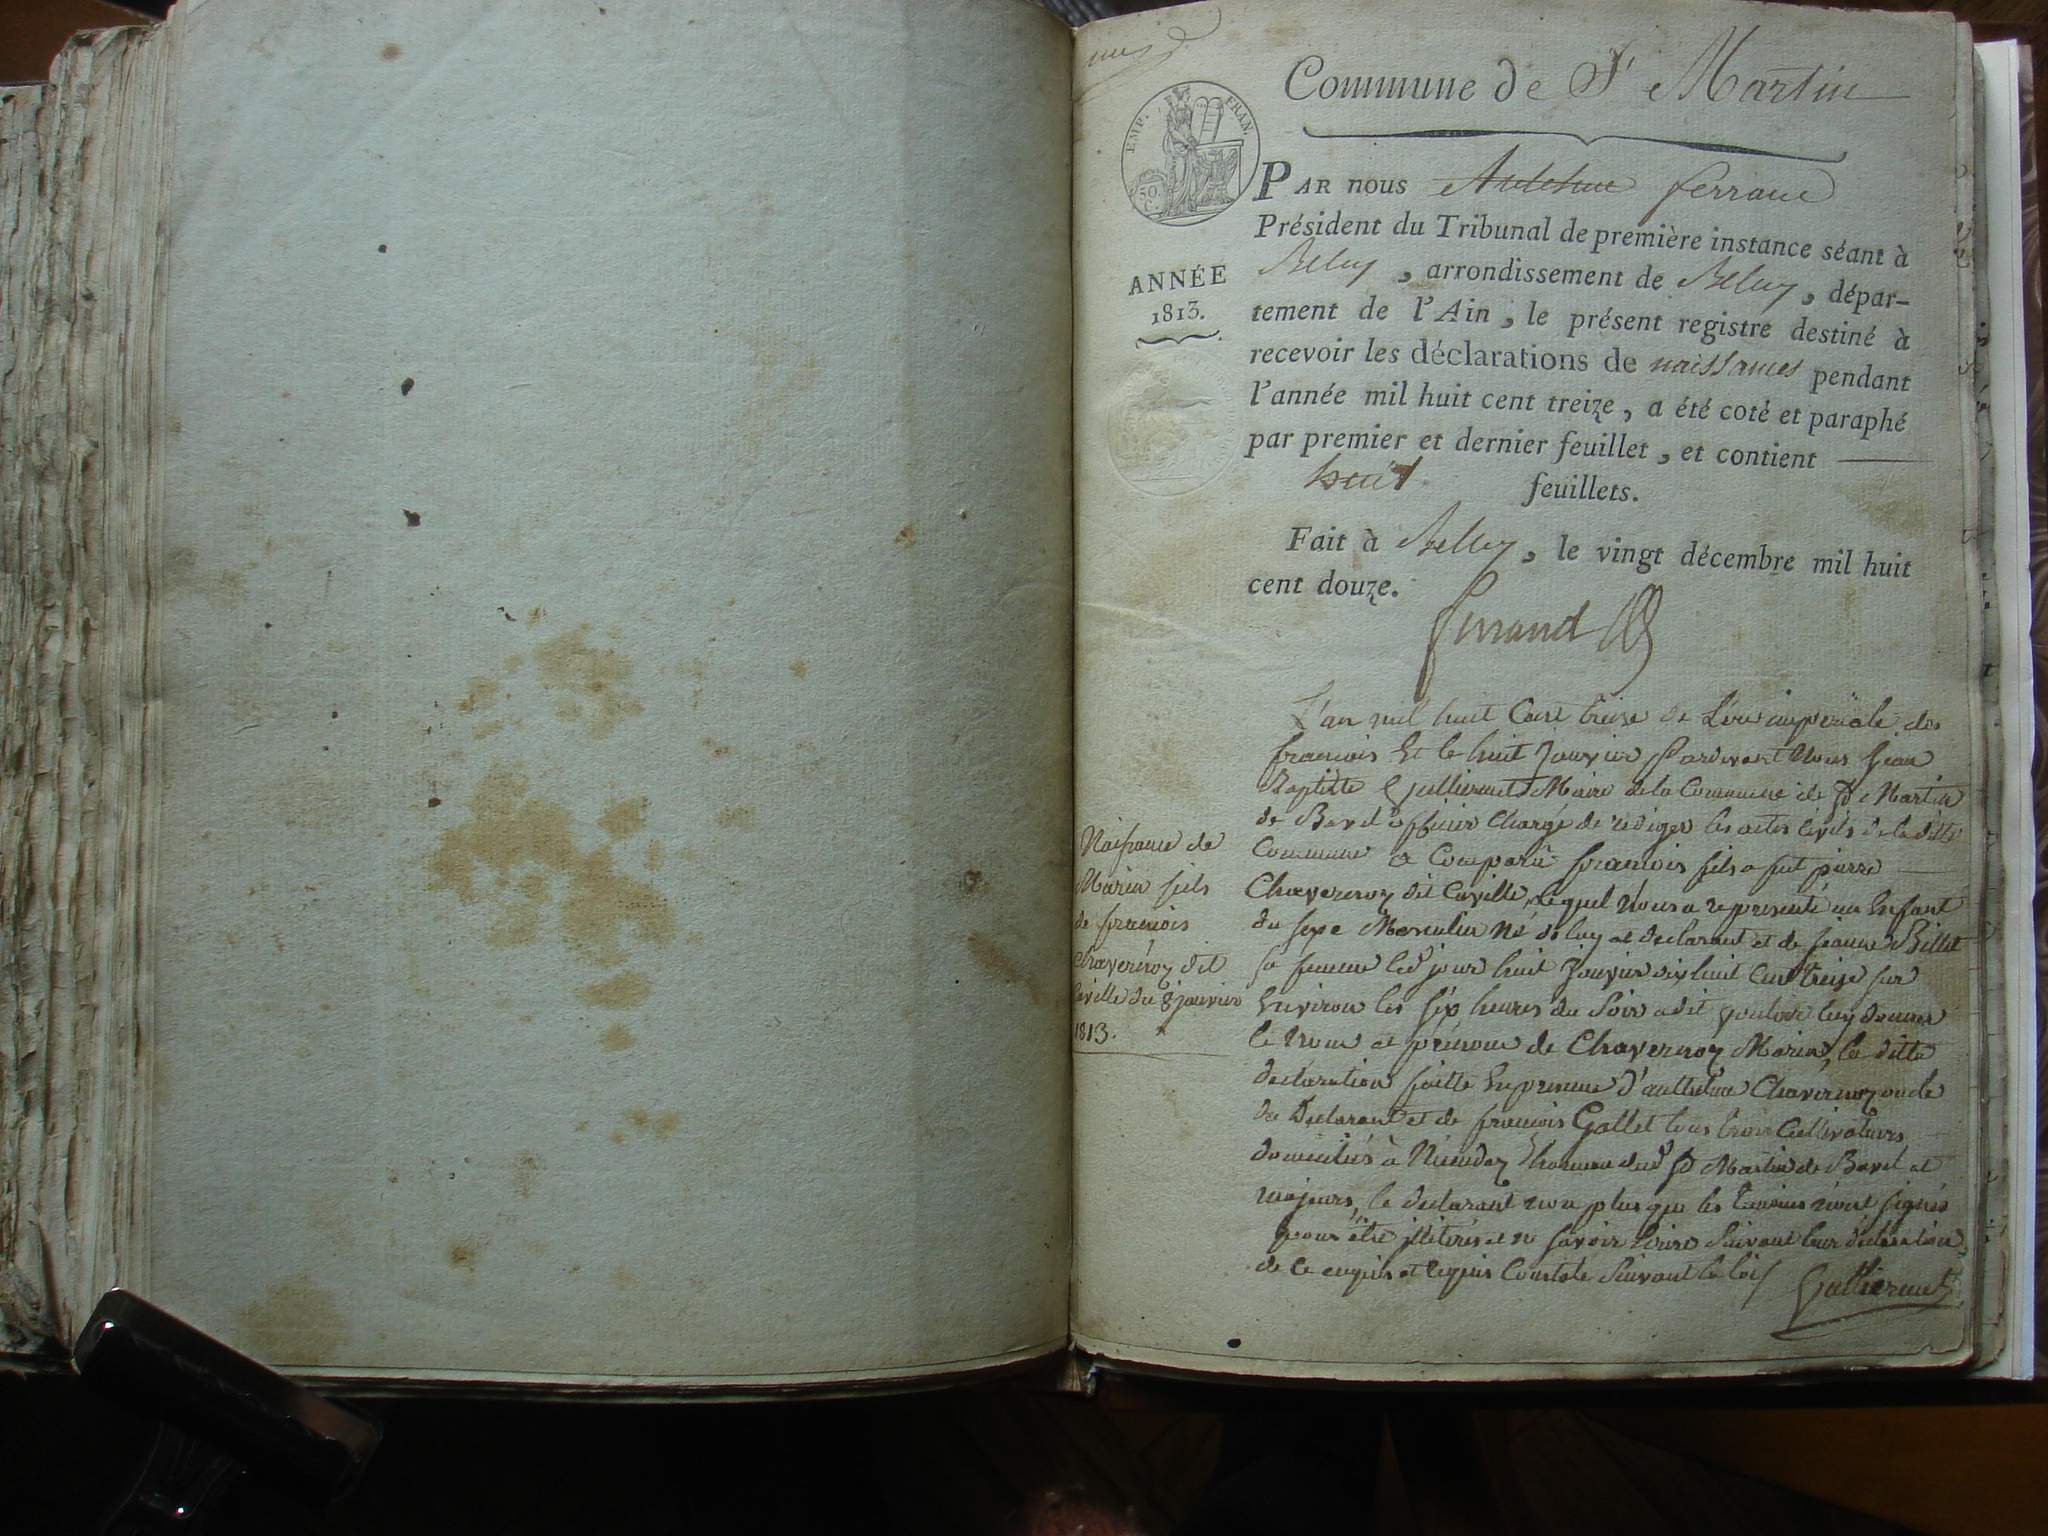 Commune de St Martin
EMP. FRAN.
50.
C.
PAR nous Antelme ferrand
Président du Tribunal de première instance séant à
Belley, arrondissement de Belley, dépar-
tement de l'Ain, le présent registre destiné à
recevoir les déclarations de naissances pendant
l'année mil huit cent treize, a été coté et paraphé
par premier et dernier feuillet, et contient
huit feuillets.
Fait à Belley, le vingt décembre mil huit
cent douze.
ferrand
ANNÉE
1813.
Naissance de
Marin fils
de francois
Chavernoz dit
Caville du 8 janvier
1813.
L'an mil huit Cent treize de L'ere imperiale des
francois Et le huit Janvier Pardevant Nous Jean
Baptiste Gullierme Maire de la Commune de St Martin
de Bavel officier Chargé de rediger les actes Civils de la ditte
Commune a Comparu francois fils a fut pierre
Chavernoz dit Caville, lequel Nous a representé un Enfant
du sexe Masculin Né de luy declarant et de jeanne Billet
sa femme led jour huit Janvier dix huit Cent treize sur
Environ les six heures du Soir a dit vouloir luy donner
le Nom et prénom de Chavernoz Marin, la ditte
declaration faitte En presence d'anthelme Chavernoz oncle
du Declarant et de francois Gallet tous trois Cultivateurs
domiciliés à hameau dud St Martin de Bavel et
majeurs, le declarant non plus que les temoins n'ont signés
pour être illiterés et ne savoir Ecrire Suivant leur déclaration
de ce enquis et requis Constaté Suivant la loi